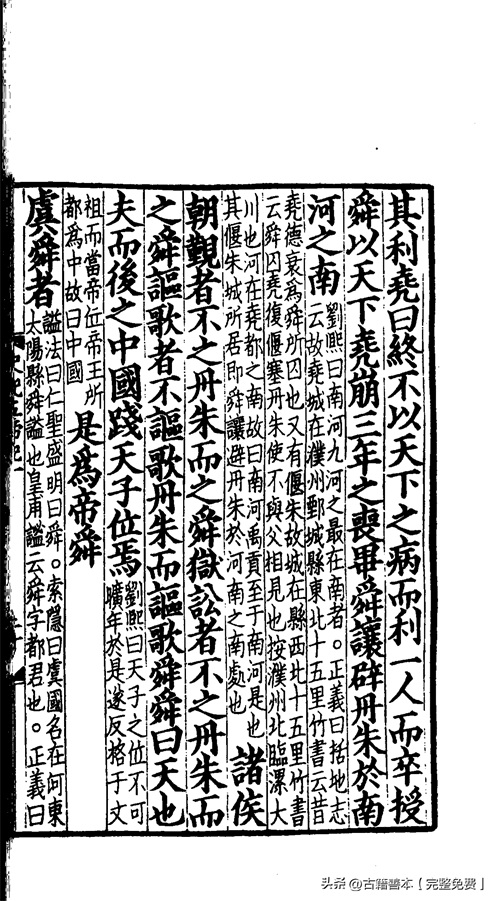 其利堯曰終不以天下之病而利一人而卒授
舜以天下堯崩三年之喪畢舜讓辟丹朱於南
河之南
劉熙曰南河九河之最在南者。正義曰括地志
云故堯城在濮州鄄城縣東北十五里竹書云昔
堯德衰爲舜所囚也又有偃朱故城在縣西北十五里竹書
云舜囚堯復偃塞丹朱使不與父相見也按濮州北臨漯大
川也河在堯都之南故曰南河禹貢至于南河是也
其偃朱城所居即舜讓避丹朱於河南之南處也
諸侯
朝覲者不之丹朱而之舜獄訟者不之丹朱而
之舜謳歌者不謳歌丹朱而謳歌舜舜曰天也
夫而後之中國踐天子位焉
劉熙曰天子之位不可
曠年於是遂反格于文
祖而當帝位帝王所
都爲中故曰中國
是爲帝舜
虞舜者
諡法曰仁聖盛明曰舜。索隱曰虞國名在河東
太陽縣舜諡也皇甫謐云舜字都君也。正義曰
头条@古籍善本【完整免费】